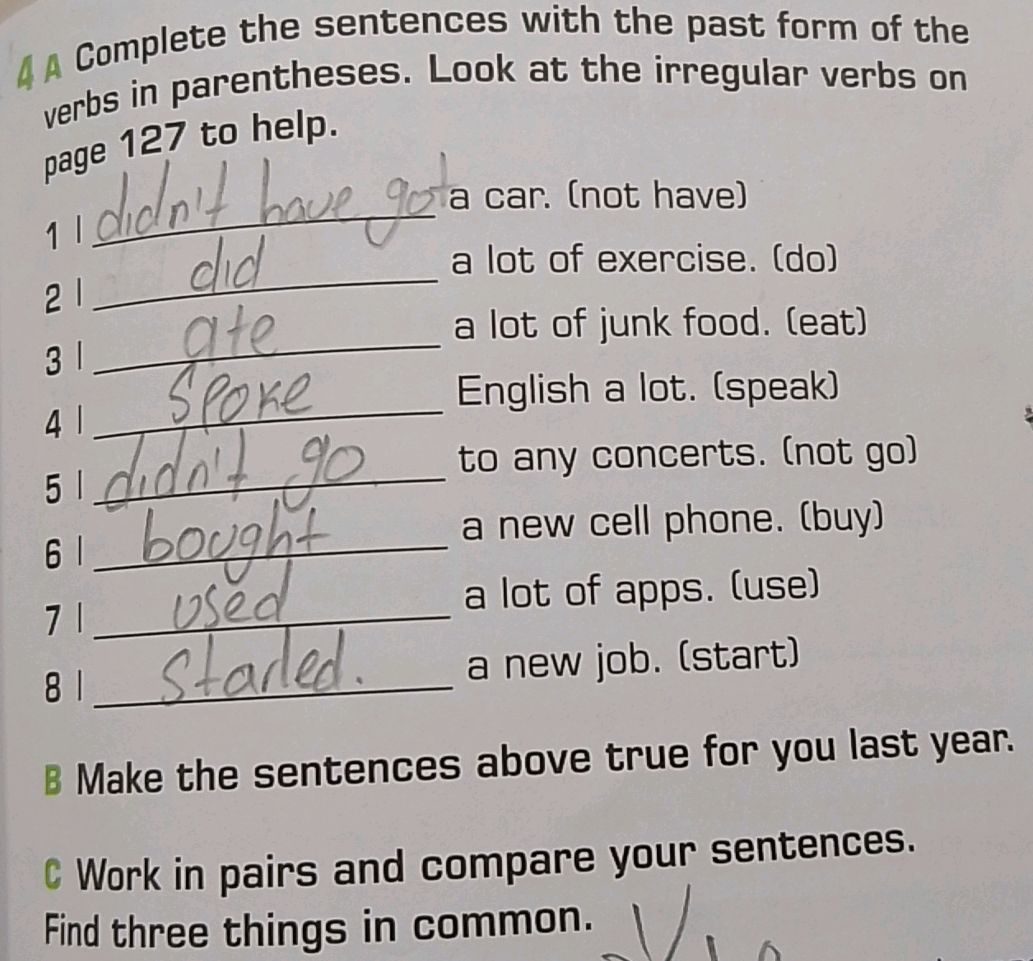 4 A Complete the sentences with the past form of the
verbs in parentheses. Look at the irregular verbs on
page 127 to help.
1 I didn't have got a car. (not have)
2 I did a lot of exercise. (do)
3 I ate a lot of junk food. (eat)
4 I spoke English a lot. (speak)
5 I didn't go to any concerts. (not go)
6 I bought a new cell phone. (buy)
7 I used a lot of apps. (use)
8 I started. a new job. (start)
B Make the sentences above true for you last year.
C Work in pairs and compare your sentences.
Find three things in common.